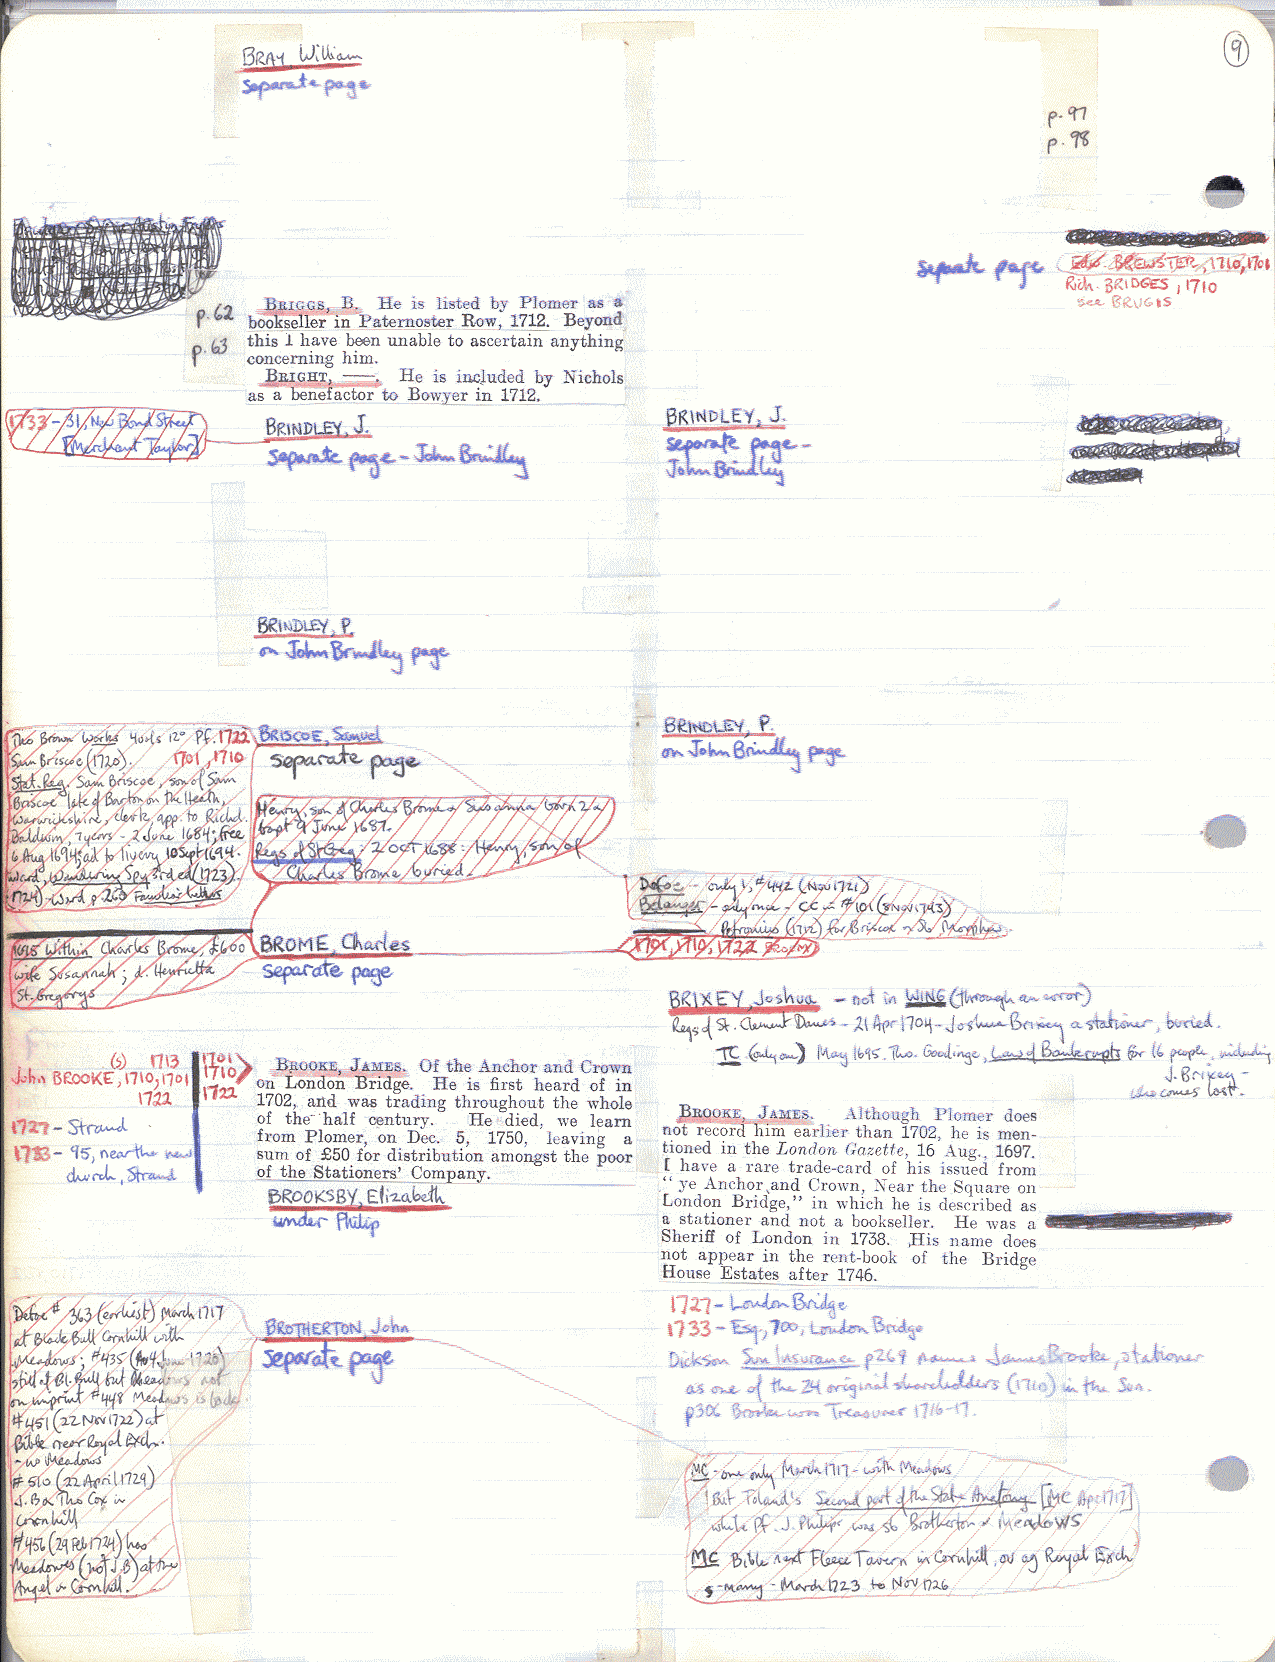 9
BRAY William
separate page
p. 97
p. 98
separate page
Edw BREWSTER, 1710, 1701
Rich. BRIDGES, 1710
see BRUGIS
p. 62
p. 63
BRIGGS, B. He is listed by Plomer as a
bookseller in Paternoster Row, 1712. Beyond
this I have been unable to ascertain anything
concerning him.
BRIGHT, ——. He is included by Nichols
as a benefactor to Bowyer in 1712.
1733 - 31, New Bond Street
[Merchant Taylor]
BRINDLEY, J.
separate page - John Brindley
BRINDLEY, J.
separate page -
John Brindley
BRINDLEY, P.
on John Brindley page
BRINDLEY, P.
on John Brindley page
Tho Brown Works 4 vols 12° Pf. 1722
Sam Briscoe (1720). 1701, 1710
Stat. Reg. Sam Briscoe, son of Sam
Briscoe late of Barton on the Heath,
Warwickshire, clerk, app. to Richd.
Baldwin, 7 years - 2 June 1684; free
6 Aug 1694; ad to livery 10 Sept 1694.
Ward, Wandering Spy 3rd ed (1723).
1724) - Ward p 263 Familiar Letters
BRISCOE, Samuel
separate page
Henry, son of Charles Brome & Susanna born 2 &
bapt 9 June 1687.
Regs of St Greg: 2 OCT 1688: Henry, son of
Charles Brome buried.
Defoe - only 1, #442 (Nov 1721)
Belanger - only once - CC = #101 (8 Nov 1743)
Petronius (1712) for Briscoe & sb J. Morphew
1695 Within Charles Brome, £600
wife Susannah; d. Henrietta
St. Gregorys
BROME, Charles
separate page
1701, 1710, 1722
BRIXEY, Joshua - not in WING (through an error)
Regs of St. Clement Danes - 21 Apr 1704 - Joshua Brixey a stationer, buried.
TC (only one) May 1695. Tho. Goodinge, Law of Bankrupts for 16 people, including
J. Brixey -
who comes last.
(s) 1713
John BROOKE, 1710, 1701
1722
1701
1710
1722
1727 - Strand
1733 - 95, near the new
church, Strand
BROOKE, JAMES. Of the Anchor and Crown
on London Bridge. He is first heard of in
1702, and was trading throughout the whole
of the half century. He died, we learn
from Plomer, on Dec. 5, 1750, leaving a
sum of £50 for distribution amongst the poor
of the Stationers' Company.
BROOKSBY, Elizabeth
under Philip
BROOKE, JAMES. Although Plomer does
not record him earlier than 1702, he is men-
tioned in the London Gazette, 16 Aug., 1697.
I have a rare trade-card of his issued from
“ ye Anchor and Crown, Near the Square on
London Bridge,” in which he is described as
a stationer and not a bookseller. He was a
Sheriff of London in 1738. His name does
not appear in the rent-book of the Bridge
House Estates after 1746.
1727 - London Bridge
1733 - Esq, 700, London Bridge
Dickson Sun Insurance p 269 names James Brooke, stationer
as one of the 24 original shareholders (1710) in the Sun.
p306 Brooke was Treasurer 1716-17.
Defoe # 363 (earliest) March 1717
at Black Bull Cornhill with
Meadows; #435 (
still at Bl. Bull but Meadows not
on imprint #448 Meadows is back.
#451 (22 Nov 1722) at
Bible near Royal Exch.
- no Meadows
# 510 (22 April 1729)
J. B & Tho Cox in
Cornhill
#456 (29 Feb 1724) has
Meadows (not J. B) at the
Angel in Cornhill.
BROTHERTON, John
separate page
MC - one only March 1717 - with Meadows
But Toland's Second part of the State Anatomy [MC Apr 1717]
while Pf. J. Philips was sb Brotherton & MEADOWS
MC Bible next Fleece Tavern in Cornhill, ov ag Royal Exch
s - many - March 1723 to Nov 1726